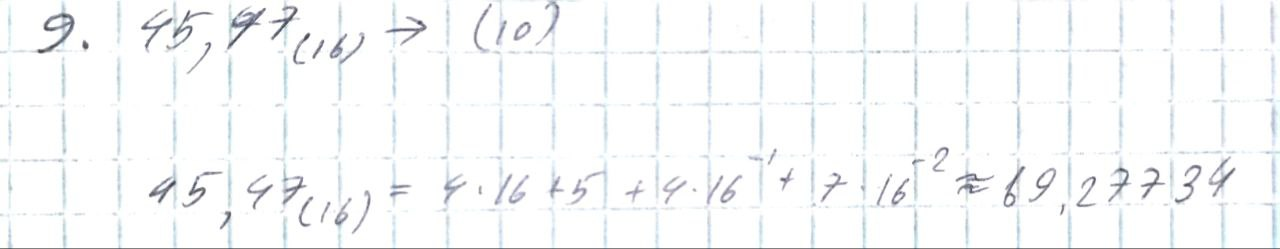 9. 45,47₍₁₆₎ → (10)
45,47₍₁₆₎ = 4·16+5 + 4·16⁻¹ + 7·16⁻² ≈ 69,27734